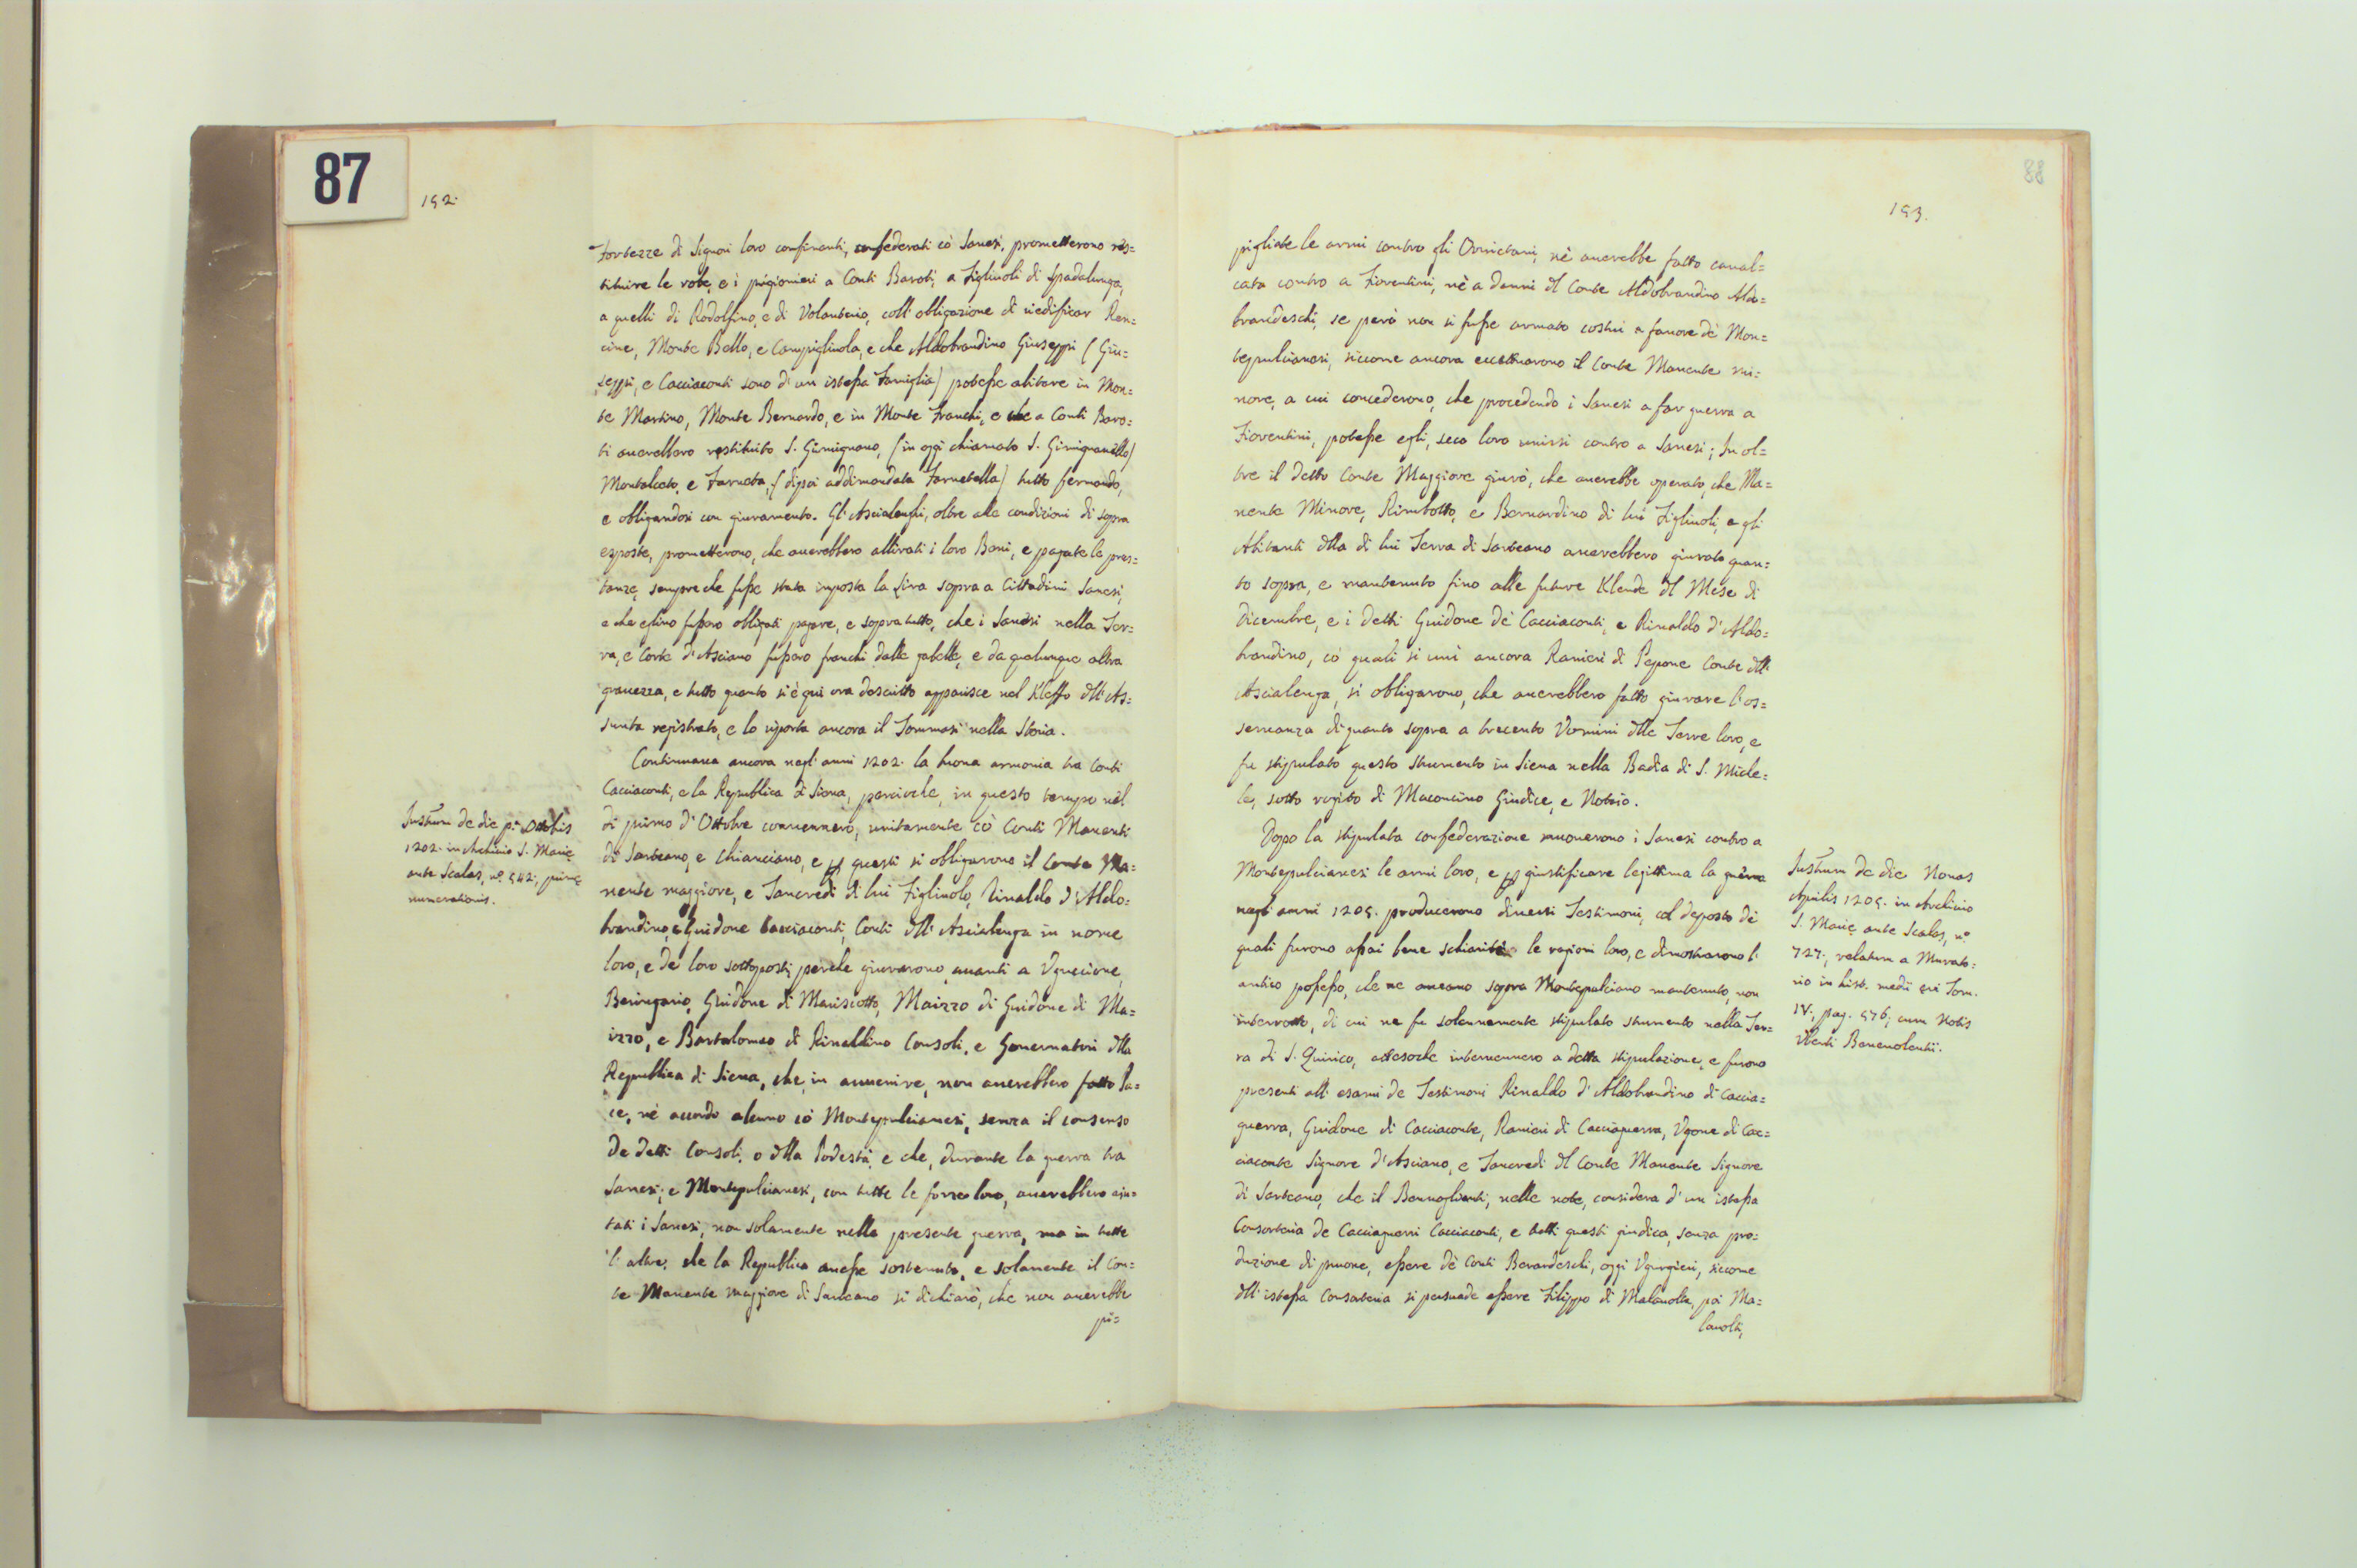 87
192.
Fortezze di Signori loro confinanti, confederati cò Sanesi, prometterono res=
tituire le robe, e i prigionieri a Conti Baroti, a Figliuoli di Spadalunga,
a quelli di Rodolfino, e di Volanterio, coll' obligazione di riedificar Ren=
cine, Monte Bello, e Campigliuola, e che Aldobrandino Giuseppi (Giu=
seppi, e Cacciaconti sono d'un istessa Famiglia) potesse abitare in Mon=
te Martino, Monte Bernardo, e in Monte Franchi, e che a Conti Baro=
ti averebbero restituito S. Gimignano, (in oggi chiamato S. Gimignanello)
Montalceto, e Farneta, (dipoi addimandata Farnetella) tutto fermando,
e obligandosi con giuramento. Gl' Ascialenghi, oltre alle condizioni di sopra
esposte, prometterono, che auerebbero allirati i loro Beni, e pagate le pres=
tanze, sempre che fusse stata imposta la Lira sopra a Cittadini Sanesi,
e che essino fussero obligati pagare, e sopra tutto, che i Sanesi nella Ter=
ra, e Corte d'Asciano fussero franchi dalle gabelle, e da qualunque altra
grauezza, e tutto quanto si è qui ora descritto apparisce nel Kleffo dll' As=
sunta registrato, e lo riporta ancora il Tommasi nella Storia.
Continuaua ancora negl' anni 1202. la buona armonia tra Conti
Cacciaconti, e la Republica di Siena, perciocche, in questo tempo nel
di primo d'Ottobre conuennero, unitamente cò Conti Manenti
di Sarteano, e Chianciano, e per questi si obligarono il Conte Ma=
nente maggiore, e Tancredi di lui Figliuolo, Rinaldo d'Aldo=
brandino, e Guidone Cacciaconti, Conti dll' Ascialenga in nome
loro, e de loro sottoposti, perche giurarono auanti a Vguccione,
Beringario, Guidone di Mariscotto, Maizzo di Guidone di Ma=
izzo, e Bartalomeo di Rinaldino Consoli, e Gouernatori dlla
Republica di Siena, che, in auuenire, non auerebbero fatto Pa=
ce, nè accordo alcuno cò Montepulcianesi, senza il consenso
de detti Consoli, o dlla Podestà, e che, durante la guerra tra
Sanesi, e Montepulcianesi, con tutte le forze loro, auerebbero aiu=
tati i Sanesi, non solamente nella presente guerra, ma in tutte
l' altre, che la Republica auesse sostenuto, e solamente il Con=
te Manente maggiore di Sarteano si dichiarò, che non auerebbe
pi=
Instrum de die p.ª Ottobris
1202. in Archiuio S. Marię
ante Scalas, n.º 542; primę
numerationis.
88
193.
pigliate le armi contro gli Oruietani, nè auerebbe fatto caual=
cata contro a Fiorentini, nè a danni dl Conte Aldobrandino Aldo=
brandeschi, se però non si fusse armato costui a fauore dè Mon=
tepulcianesi, siccome ancora eccettuarono il Conte Manente mi=
nore, a cui concederono, che procedendo i Sanesi a far guerra a
Fiorentini, potesse egli, seco loro unirsi contro a Sanesi; In ol=
tre il detto Conte Maggiore giurò, che auerebbe operato, che Ma=
nente Minore, Rimbotto, e Bernardino di lui Figliuoli, e gli
Abitanti dlla di lui Terra di Sarteano auerebbero giurato quan=
to sopra, e mantenuto fino alle future Klende dl Mese di
Dicembre, e i detti Guidone dè Cacciaconti, e Rinaldo d'Aldo=
brandino, cò quali si unì ancora Ranieri di Pepone Conte dll'
Ascialenga, si obligarono, che auerebbero fatto giurare l'os=
seruanza di quanto sopra a trecento Vomini dlle Terre loro, e
fu stipulato questo strumento in Siena nella Badia di S. Miche=
le, sotto rogito di Maconcino Giudice, e Notaio.
Dopo la stipulata confederazione muouerono i Sanesi contro a
Montepulcianesi le armi loro, e per giustificare legittima la guerra
negl' anni 1205. producerono diuersi Testimoni, col deposto de
quali furono assai bene schiarite le ragioni loro, e dimostrarono l'
antico possesso, che ne aueano sopra Montepulciano mantenuto, non
interrotto, di cui ne fu solennemente stipulato strumento nella Ter=
ra di S. Quirico, attesoche interuennero a detta stipulazione, e furono
presenti all' esami de Testimoni Rinaldo d' Aldobrandino di Caccia=
guerra, Guidone di Cacciaconte, Ranieri di Cacciaguerra, Vgone di Cac=
ciaconte Signore d'Asciano, e Tancredi dl Conte Manente Signore
di Sarteano, che il Benuoglienti, nelle note, considera d'un istessa
Consorteria de Cacciaguerri Cacciaconti, e tutti questi giudica, senza pro=
duzione di pruoue, essere dè Conti Berardeschi, oggi Vgurgieri, siccome
dll' istessa Consorteria si persuade essere Filippo di Malauolta, poi Ma=
lauolti,
Instrum de die Nonas
Aprilis 1205. in Archiuio
S. Marię ante Scalas, n.º
727., relatum a Murato=
rio in hist. medii ęui Tom.
IV., pag. 576, cum Notis
Vberti Beneuolentii.